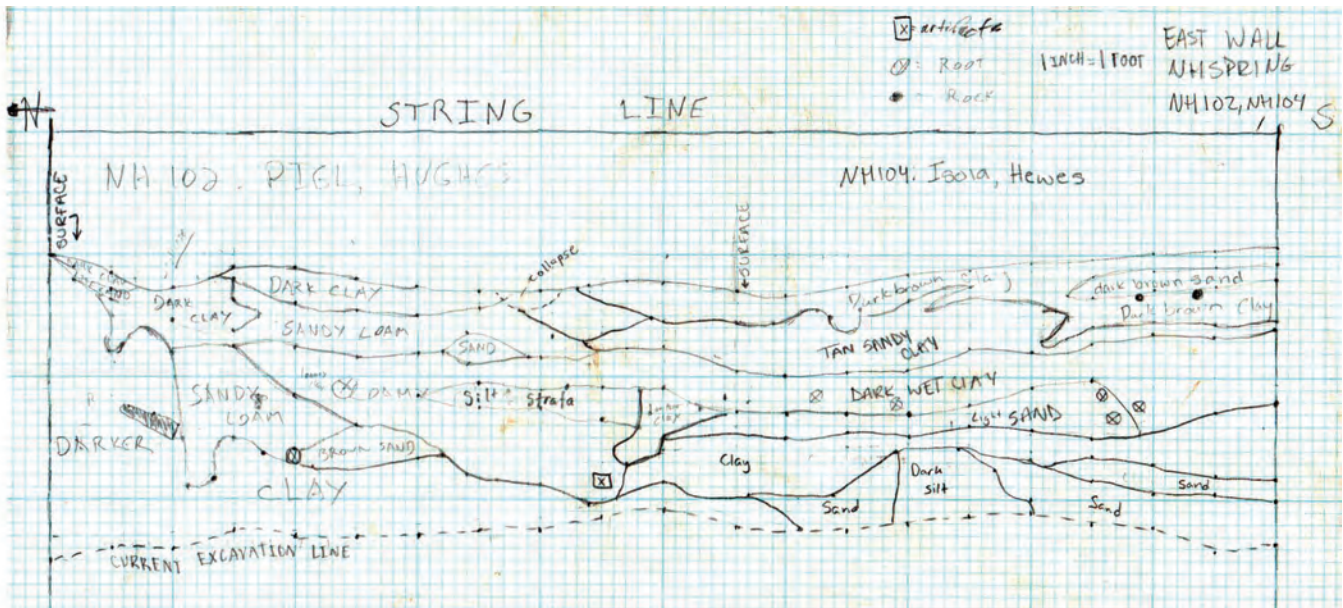 X = artifacts
= ROOT
= ROCK
1 INCH = 1 FOOT
EAST WALL
NHSPRING
NH102, NH104
N
S
STRING LINE
NH 102. PIEL, HUGHES
NH104. Isola, Hewes
SURFACE
SURFACE
collapse
DARK CLAY
DARK CLAY
SANDY LOAM
SAND
Dark brown Clay
dark brown sand
Dark brown Clay
TAN SANDY CLAY
DARK WET CLAY
SANDY LOAM
LOAMY
Silt Strata
Light SAND
DARKER
BROWN SAND
CLAY
X
Clay
Dark Silt
Sand
Sand
Sand
CURRENT EXCAVATION LINE